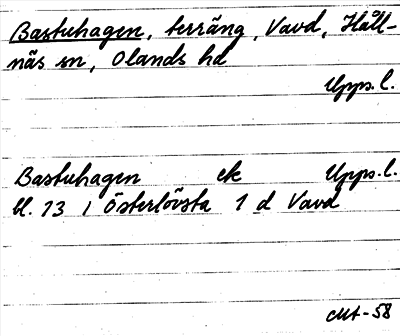 Bastuhagen, terräng, Vavd, Håll-
näs sn, Olands hd
Upps. l.
Bastuhagen ek Upps. l.
bl. 73 i Österlövsta 1 d Vavd
-58